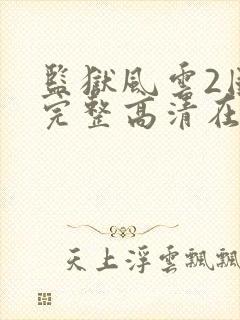 監獄風雲2
完整高清在
天上浮雲飄飄